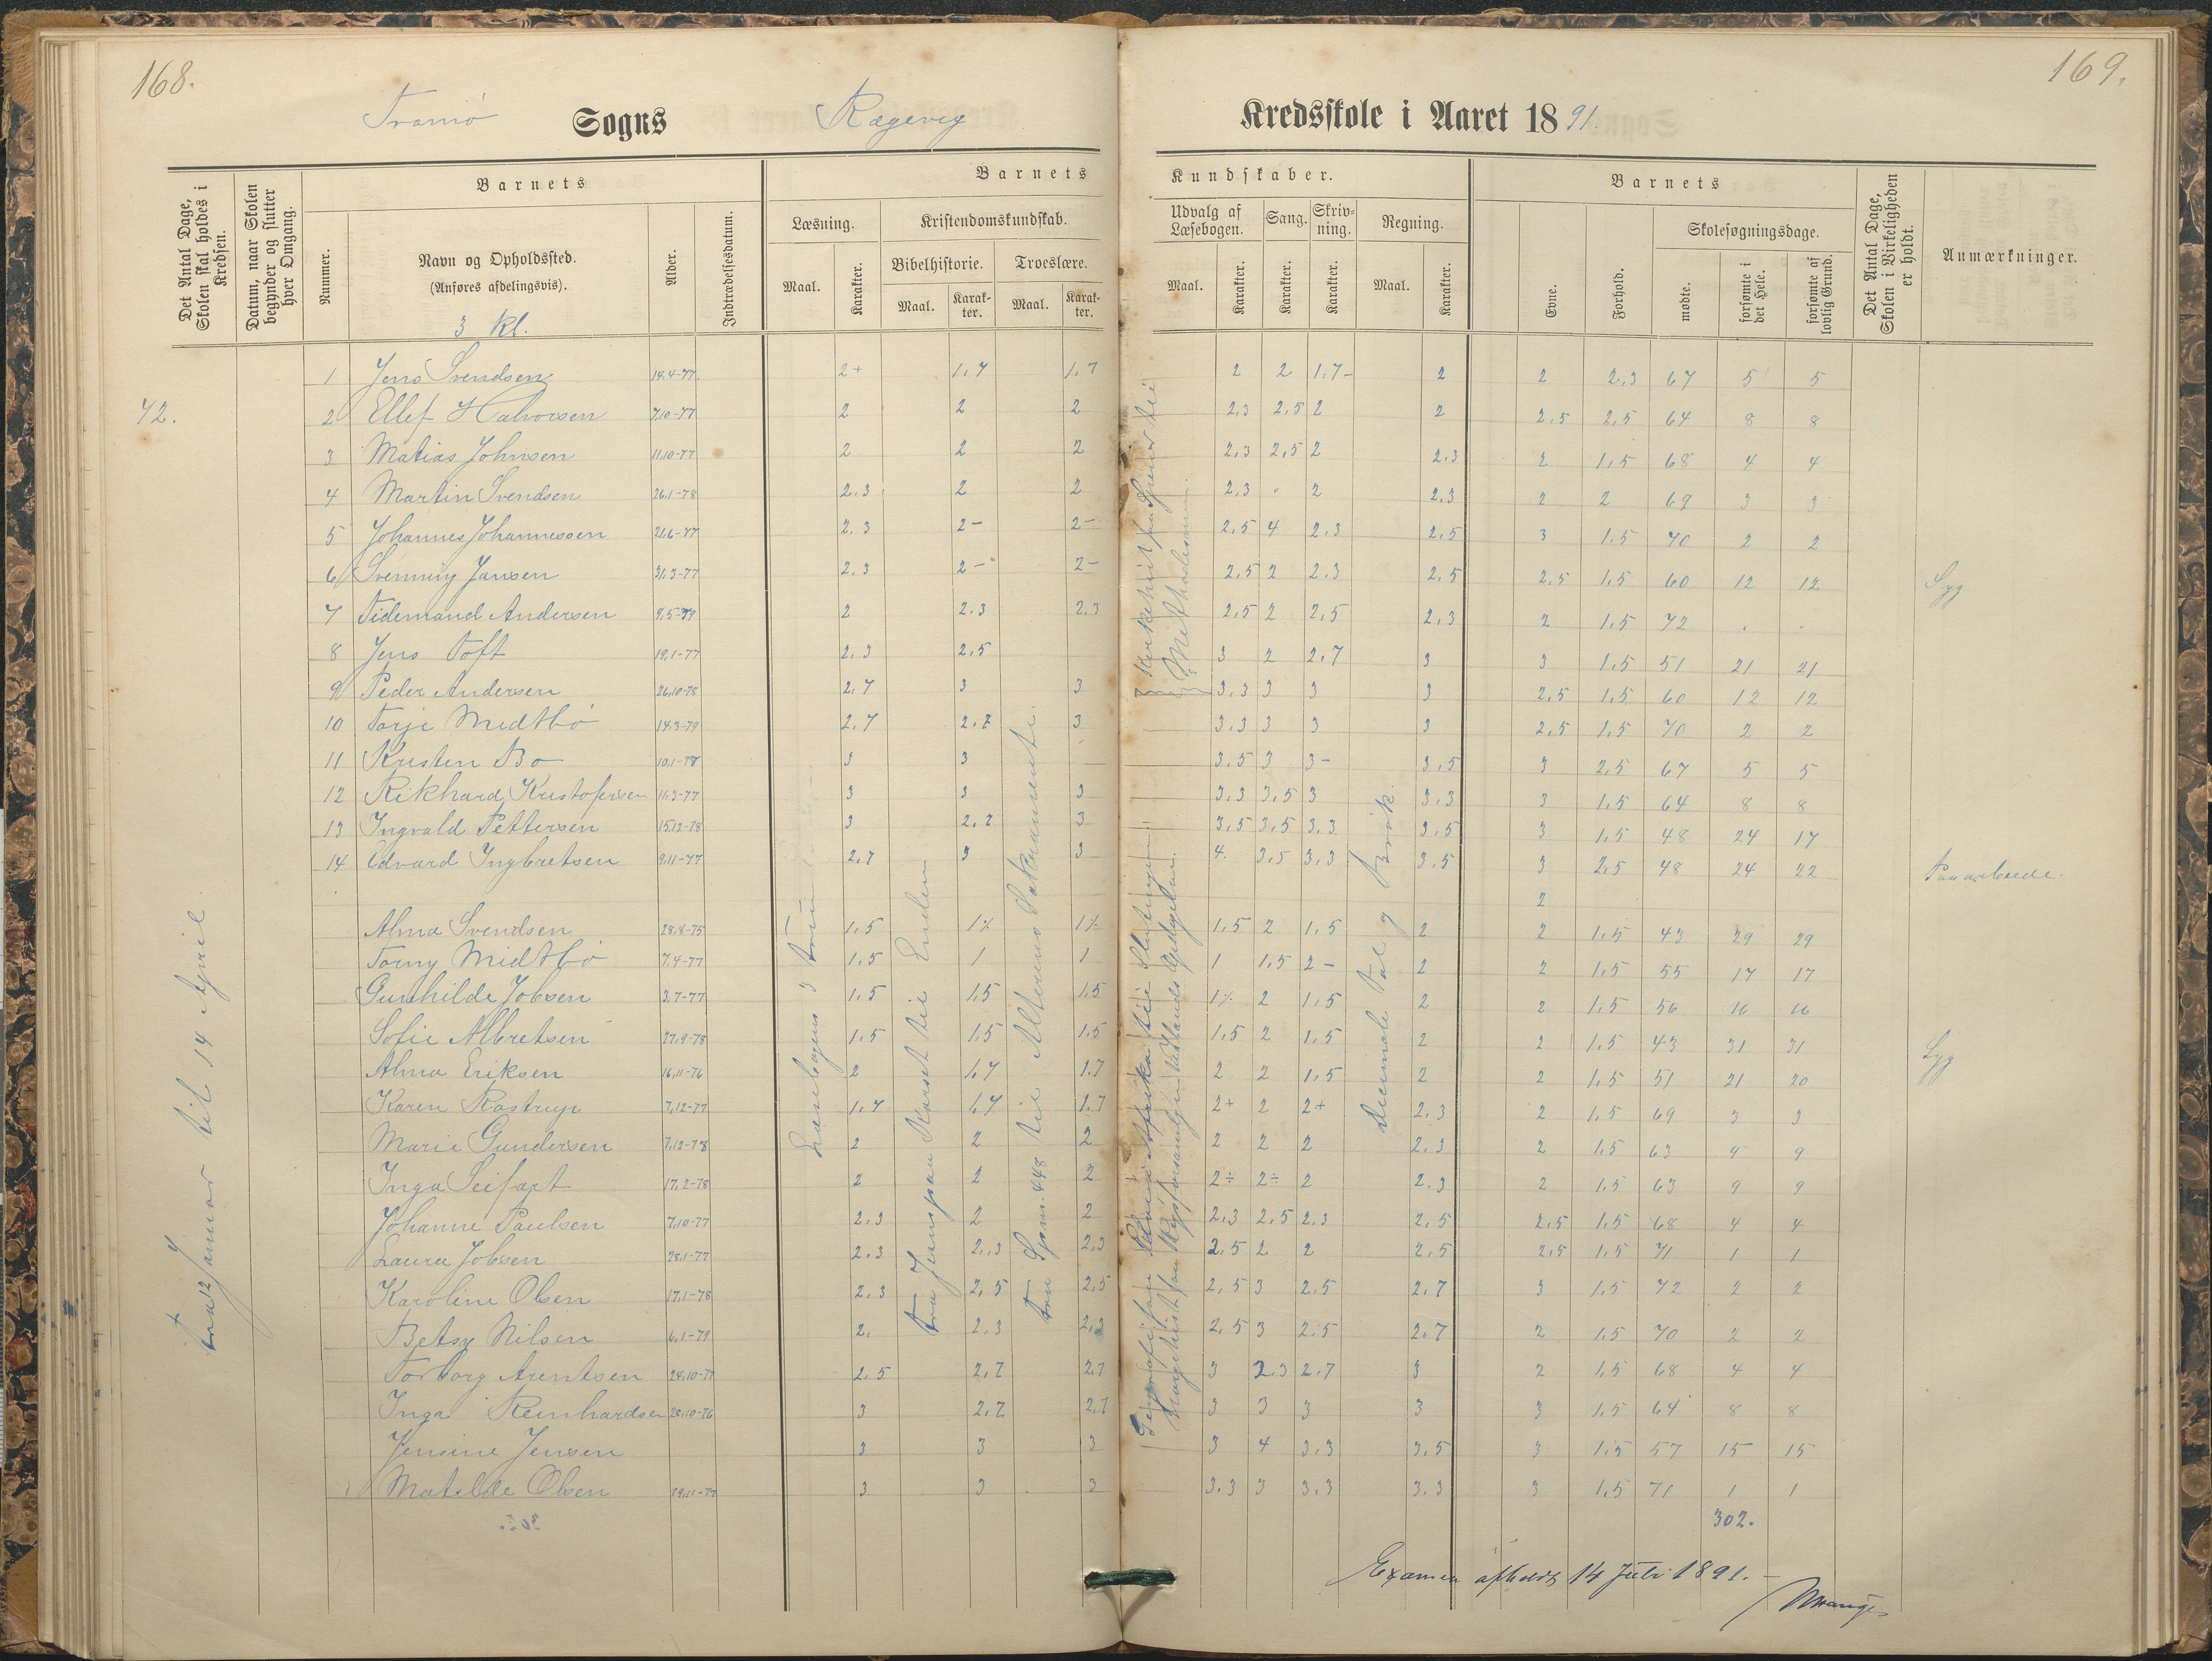 168.
169.
Tromø Sogns Rægevig Kredsskole i Aaret 1891.
Det Antal Dage, Skolen skal holdes i Kredsen.
Datum, naar Skolen begynder og slutter hver Omgang.
Barnets
Nummer.
Navn og Opholdssted.
(Anføres afdelingsvis).
3 kl.
Alder.
Indtrædelsesdatum.
Barnets Kundskaber.
Læsning.
Maal.
Karakter.
Kristendomskundskab.
Bibelhistorie.
Maal.
Karakter.
Troeslære.
Maal.
Karakter.
Udvalg af Læsebogen.
Maal.
Karakter.
Sang.
Karakter.
Skrivning.
Karakter.
Regning.
Maal.
Karakter.
Barnets
Evne.
Forhold.
Skolesøgningsdage.
mødte.
forsømte i det Hele.
forsømte af lovlig Grund.
Det Antal Dage, Skolen i Virkeligheden er holdt.
Anmærkninger.
72.
fra 12 Januar til 14 April
1 Jens Svendsen 14.4-77 2+ 1,7 1,7 2 2 1,7- 2 2 2,3 67 5 5
2 Ellef Halvorsen 7.10-77 2 2 2 2,3 2,5 2 2 2,5 2,5 64 8 8
3 Matias Johnsen 11.10-77 2 2 2 2,3 2,5 2 2,3 2 1,5 68 4 4
4 Martin Svendsen 26.1-78 2,3 2 2 2,3 . 2 2,3 2 2 69 3 3
5 Johannes Johannessen 21.6-77 2,3 2- 2- 2,5 4 2,3 2,5 3 1,5 70 2 2
6 Svenning Jansen 31.3-77 2,3 2- 2- 2,5 2 2,3 2,5 2,5 1,5 60 12 12 Syg
7 Tidemand Andersen 9.5-79 2 2,3 2,3 2,5 2 2,5 2,3 2 1,5 72 . .
8 Jens Toft 19.1-77 2,3 2,5 3 2 2,7 3 3 1,5 51 21 21
9 Peder Andersen 26.10-78 2,7 3 3 3,3 3 3 3 2,5 1,5 60 12 12
10 Torje Medtbö 14.3-79 2,7 2,7 3 3,3 3 3 3 2,5 1,5 70 2 2
11 Kristen Bo 10.1-78 3 3 3,5 3 3- 3,5 3 2,5 67 5 5
12 Rikhard Kristofersen 11.3-77 3 3 3 3,3 3,5 3 3,3 3 1,5 64 8 8
13 Ingvald Pettersen 15.12-78 3 2,7 3 3,5 3,5 3,3 3,5 3 1,5 48 24 17
14 Edvard Ingbretsen 9.11-77 2,7 3 3 4. 3,5 3,3 3,5 3 2,5 48 24 22
2
Alma Svendsen 28.8-75 1,5 1% 1% 1,5 2 1,5 2 2 1,5 43 29 29
Torny Midtbö 7.4-77 1,5 1 1 1 1,5 2- 2 2 1,5 55 17 17
Gunhilde Jobsen 3.7-77 1,5 1,5 1,5 1% 2 1,5 2 2 1,5 56 16 16
Sofie Albretsen 27.9-78 1,5 1,5 1,5 1,5 2 1,5 2 2 1,5 43 31 31 Syg
Alma Eriksen 16.11-76 2 1,7 1,7 2 2 1,5 2 2 1,5 51 21 20
Karen Rostrup 7.12-77 1,7 1,7 1,7 2+ 2 2+ 2,3 2 1,5 69 3 3
Marie Gundersen 7.12-78 2 2 2 2 2 2 2,3 2 1,5 63 9 9
Inga Seifart 17.2-78 2 2 2 2÷ 2÷ 2 2,3 2 1,5 63 9 9
Johanne Paulsen 7.10-77 2,3 2 2 2,3 2,5 2,3 2,5 2,5 1,5 68 4 4
Laura Jobsen 28.1-77 2,3 2,3 2,3 2,5 2 2 2,5 2,5 1,5 71 1 1
Karoline Olsen 17.1-78 2,3 2,5 2,5 2,5 3 2,5 2,7 3 1,5 72 2 2
Betsy Nilsen 6.1-79 2. 2,3 2,3 2,5 3 2,5 2,7 2 1,5 70 2 2
Torborg Arentsen 24.10-77 2,5 2,7 2,7 3 2,3 2,7 3 2 1,5 68 4 4
Inga Reinhardsen 28.10-76 3 2,7 2,7 3 3 3 3 3 1,5 64 8 8
Jensine Jensen 3 3 3 3 4 3,3 3,5 3 1,5 57 15 15
Matilde Olsen 19.11-77 3 3 3 3,3 3 3,3 3,3 3 1,5 71 1 1
302.
Læsebogens 3
fra Jesus paa Korset til Enden
fra Spm. 448 til Alterens Sakramente.
Decimale Tal og Brök.
Examen afholdt 14 Juli 1891. –